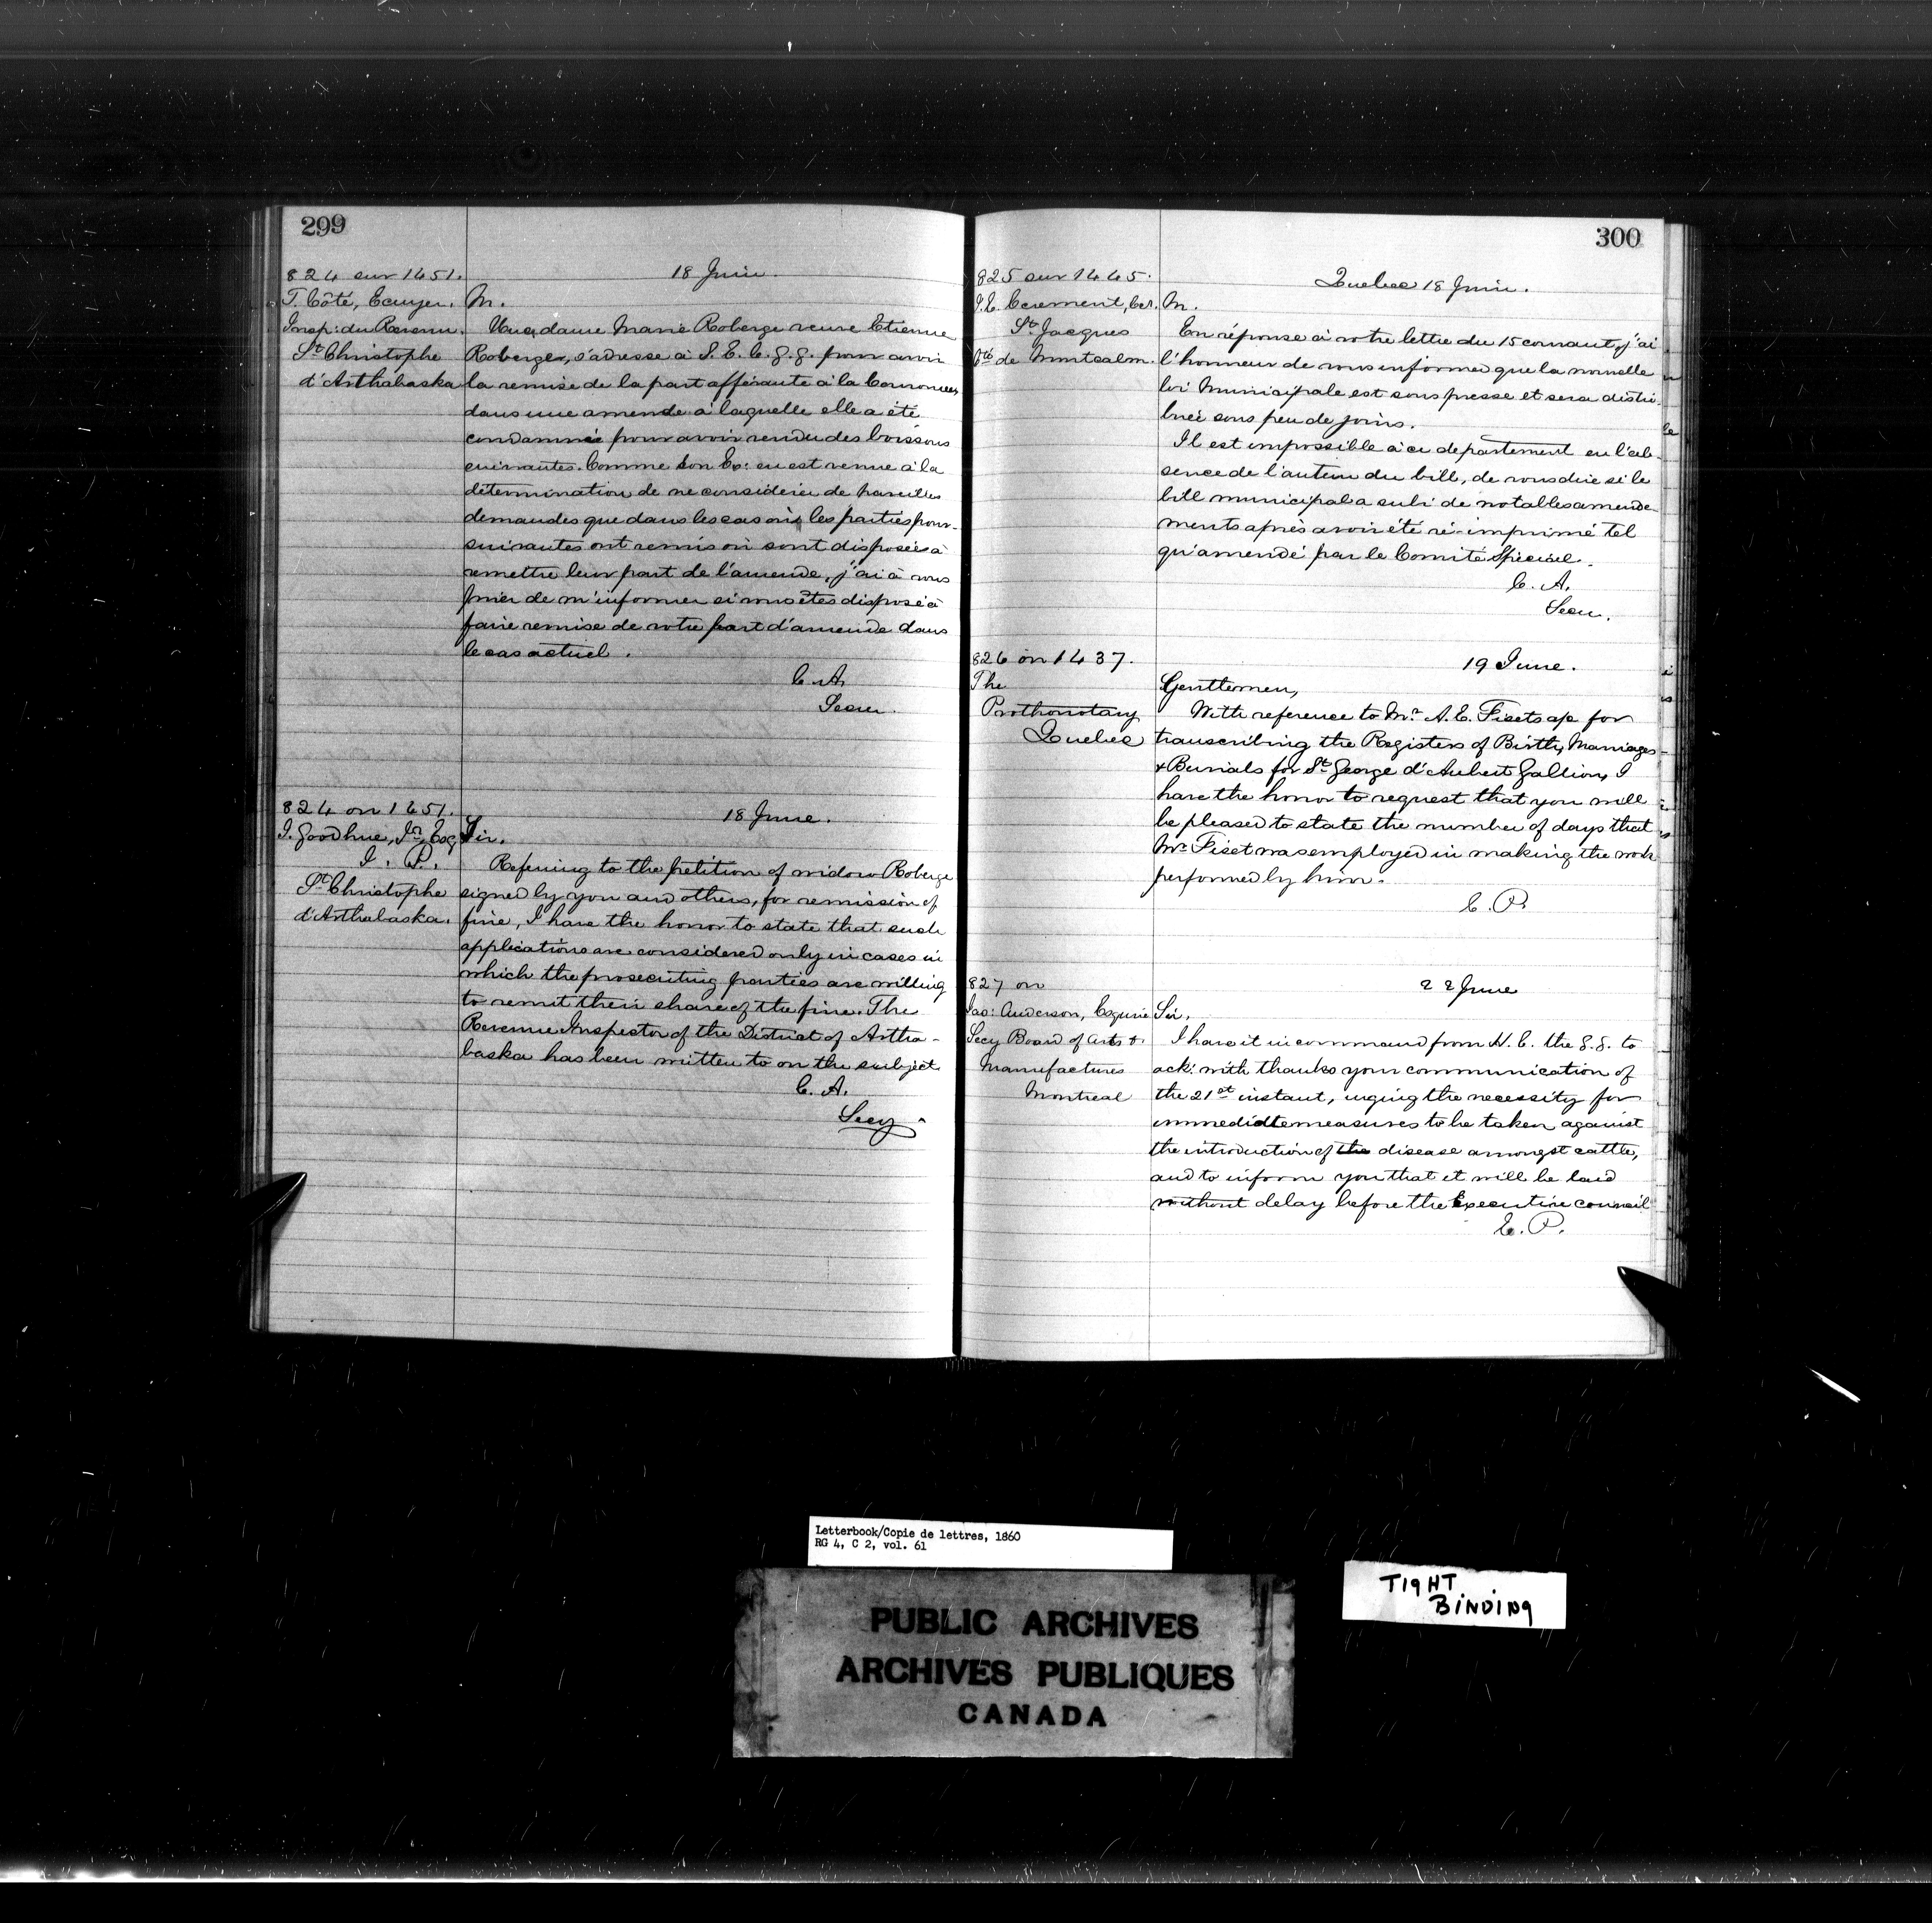 299
824 sur 1451.
18 Juin.
T. Côté, Ecuyer,
Insp: du Revenu.
St Christophe
d'Arthabaska
M.
Une dame Marie Roberge veuve Etienne
Roberge, s'adresse à S. E. l. G. G. pour avoir
la remise de la part afférante à la Couronne,
dans une amende à laquelle elle a été
condamnée pour avoir vendu des boissons
enivrantes. Comme Son Ex: en est venue à la
détermination de ne considérer de pareilles
demandes que dans les cas où les parties pour-
suivantes ont remis où sont disposées à
remettre leur part de l'amende, j'ai à vous
prier de m'informer si vous êtes disposé à
faire remise de votre part d'amende dans
le cas actuel.
C. A.
Secre.
824 on 1451.
18 June.
I. Goodhue, Jr. Esq
J. P.
St Christophe
d'Arthabaska.
Sir.
Refering to the petition of widow Roberge
signed by you and others, for remission of
fine, I have the honor to state that such
applications are considered only in cases in
which the prosecuting parties are willing
to remit their share of the fine. The
Revenue Inspector of the District of Artha-
baska has been written to on the subject
C. A.
Secy
300
825 sur 1445.
Quebec 18 Juin.
St Jacques
Cté de Montcalm.
M.
En réponse à votre lettre du 15 courant, j'ai
l'honneur de vous informer que la nouvelle
loi Municipale est sous presse et sera distri-
buée sous peu de jours.
Il est impossible à ce departement en l'ab-
sence de l'auteur du bill, de vous dire si le
bill municipal a subi de notables amende-
ments après avoir été ré-imprimé tel
qu'amendé par le Comité Spécial.
C. A.
Secre.
826 on 1437.
19 June.
The
Prothonotary
Quebec
Gentlemen,
With reference to Mr. A. E. Fisets ap for
transcribing the Registers of Birth, Marriages
& Burials for St. George d'Aubert Gallion, I
have the honor to request that you will
be pleased to state the number of days that
Mr. Fiset was employed in making the work
performed by him.
E. P.
827 on
22 June
Jas: Anderson, Esquire
Secy Board of arts &
Manufactures
Montreal
Sir,
I have it in command from H. E. the G. G. to
ack: with thanks your communication of
the 21st instant, urging the necessity for
immediate measures to be taken against
the introduction of the disease amongst cattle,
and to inform you that it will be laid
without delay before the Executive council
E. P.
Letterbook/Copie de lettres, 1860
RG 4, C 2, vol. 61
TIGHT
BINDING
PUBLIC ARCHIVES
ARCHIVES PUBLIQUES
CANADA